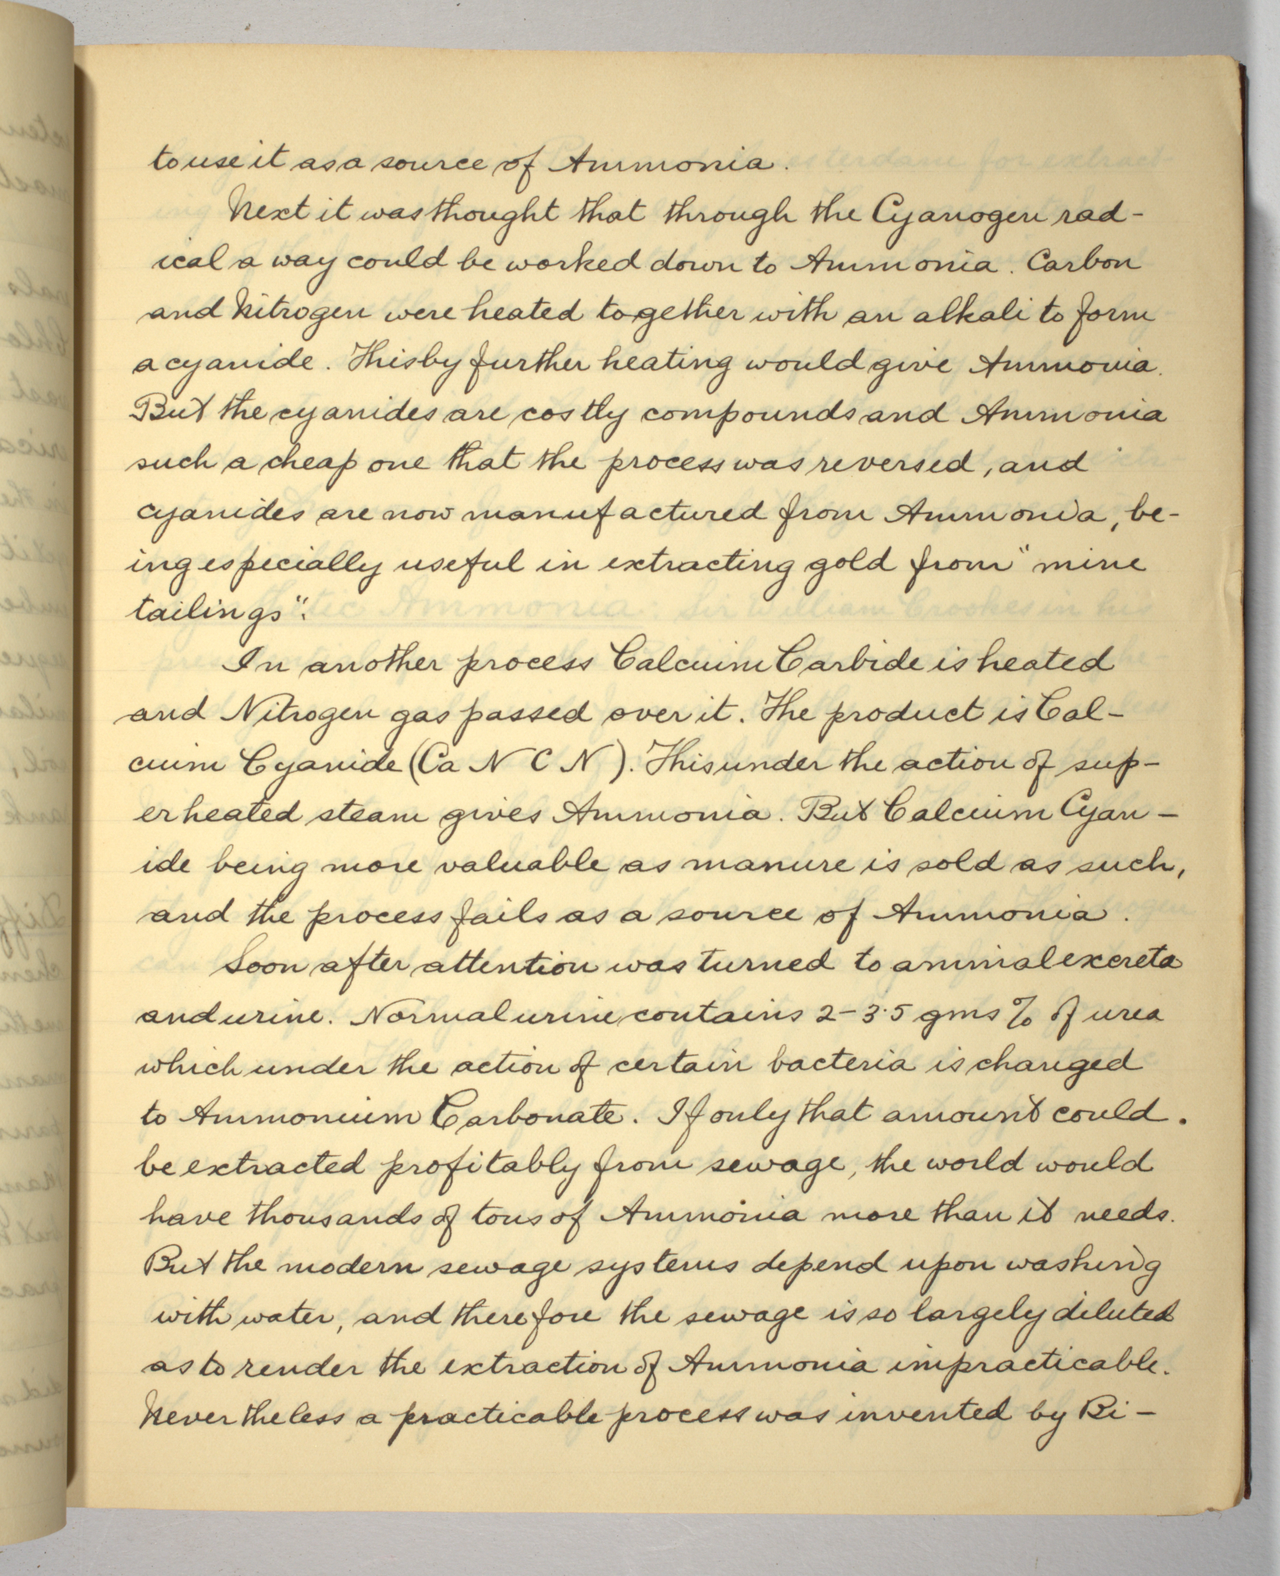 to use it as a source of Ammonia.
Next it was thought that through the Cyanogen rad-
ical a way could be worked down to Ammonia. Carbon
and Nitrogen were heated together with an alkali to form
a cyanide. This by further heating would give Ammonia.
But the cyanides are costly compounds and Ammonia
such a cheap one that the process was reversed, and
cyanides are now manufactured from Ammonia, be-
ing especially useful in extracting gold from "mine
tailings".
In another process Calcuim Carbide is heated
and Nitrogen gas passed over it. The product is Cal-
cuim Cyanide (Ca N C N). This under the action of sup-
erheated steam gives Ammonia. But Calcium Cyan-
ide being more valuable as manure is sold as such,
and the process fails as a source of Ammonia.
Soon after attention was turned to animal excreta
and urine. Normal urine contains 2-3·5 gms % of urea
which under the action of certain bacteria is changed
to Ammonium Carbonate. If only that amount could
be extracted profitably from sewage, the world would
have thousands of tons of Ammonia more than it needs.
But the modern sewage systems depend upon washing
with water, and therefore the sewage is so largely diluted
as to render the extraction of Ammonia impracticable.
Nevertheless a practicable process was invented by Ri-